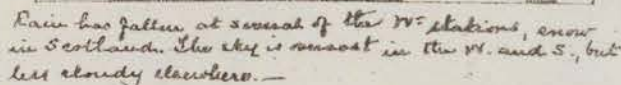 Rain has fallen at several of the Wn stations, snow
in Scotland. The sky is overcast in the W. and S., but
less cloudy elsewhere.—